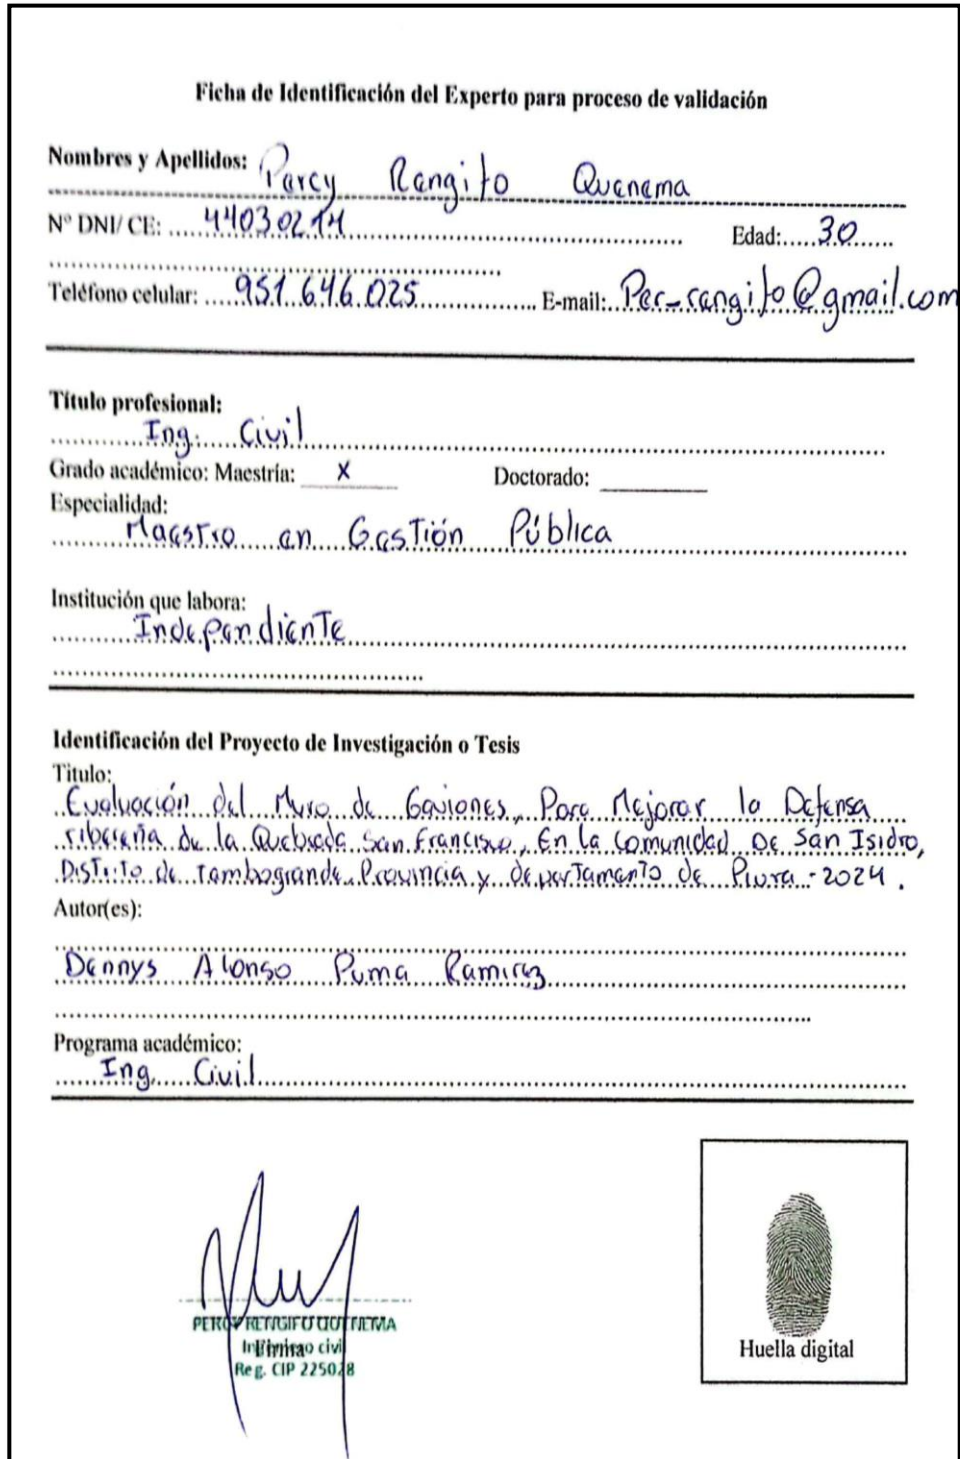 Ficha de Identificación del Experto para proceso de validación
Nombres y Apellidos: Percy Rengifo Quenema
N° DNI/ CE: 44030214 Edad: 30
Teléfono celular: 951 646 025 E-mail: Per_rengifo@gmail.com
Título profesional:
Ing. Civil
Grado académico: Maestría: X Doctorado:
Especialidad:
Maestro en Gestión Pública
Institución que labora:
Independiente
Identificación del Proyecto de Investigación o Tesis
Titulo:
Evaluación del Muro de Gaviones, Para Mejorar la Defensa
ribereña de la Quebrada San Francisco, En la Comunidad De San Isidro,
Distrito de Tambogrande, Provincia y departamento de Piura - 2024.
Autor(es):
Dennys Alonso Puma Ramirez
Programa académico:
Ing. Civil
PERCY RENGIFO QUENEMA
civil
Reg. CIP 225028
Firma
Huella digital